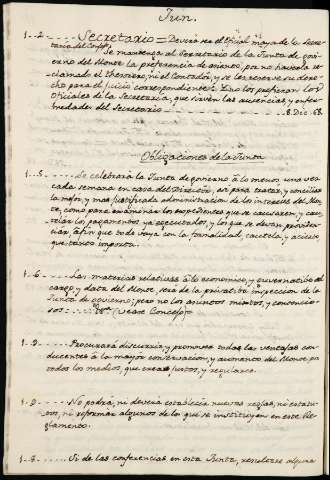 Jun.
1..2..... Secretario = Deverá ser el oficial mayor de la Secre-
taria del Consejo.
Se mantenga el Secretario de la Junta de go-
vierno del Monte la preferencia de asiento, por no haverla re-
clamado el Thesorero, ni el Contador, y se les reserve su dere-
cho para el juicio correspondiente: Pero los prefieran los
oficiales de la Secretaria, que sirven las ausencias, y enfer-
medades del Secretario 8. Dic. 68.
Obligaciones de la Junta
1..5..... Se celebrará la Junta de govierno à lo menos una vez
cada semana en casa del Director, así para tratar, y conciliar
la mejor, y mas justificada administracion de los intereses del Mon-
te, como para examinar los expedientes que se causaren, y exa-
minar los pagamentos ya executados, y los que se devan providen-
ciar, à fin que todo vaya con la formalidad, cautela, y acierto
que tanto importa.
1..6..... Las materias relativas à lo economico, y guvernativo del
cargo, y data del Monte, será de la privativa inspeccion de la
Junta de govierno; pero no los asuntos mixtos, y contencio-
sos. (Vease Consejo)
1..9..... Procurará discurrir, y promover todas las ventajas con-
ducentes à la mayor conservacion, y aumento del Monte por
todos los medios, que crea justos, y regulares.
1..9..... No podrá, ni deverá establecer nuevas reglas, ni estatu-
tos, ni reformar algunos de los que se instituyen en este Re-
glamento.
1..8..... Si de las conferencias en esta Junta, resultase alguna